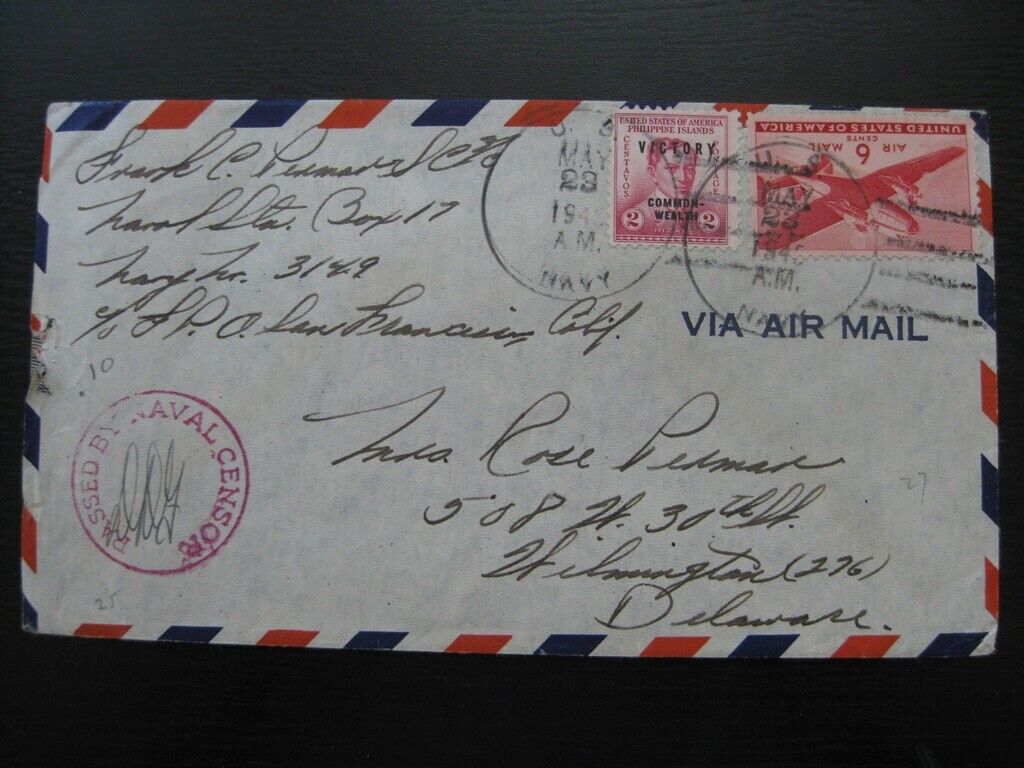 Frank C. Permar SC 2/c
Naval Sta. Box 17
Navy No. 3149
c/o F.P.O. San Francisco, Calif.
10
UNITED STATES OF AMERICA
PHILIPPINE ISLANDS
VICTORY
CENTAVOS
COMMON-
WEALTH
2 2
UNITED STATES OF AMERICA
6 CENTS
AIR MAIL
MAY
23
A.M.
NAVY
MAY
23
A.M.
VIA AIR MAIL
PASSED BY NAVAL CENSOR
Mrs. Rose Permar
508 W. 30th St.
Wilmington (276)
Delaware.
27
25